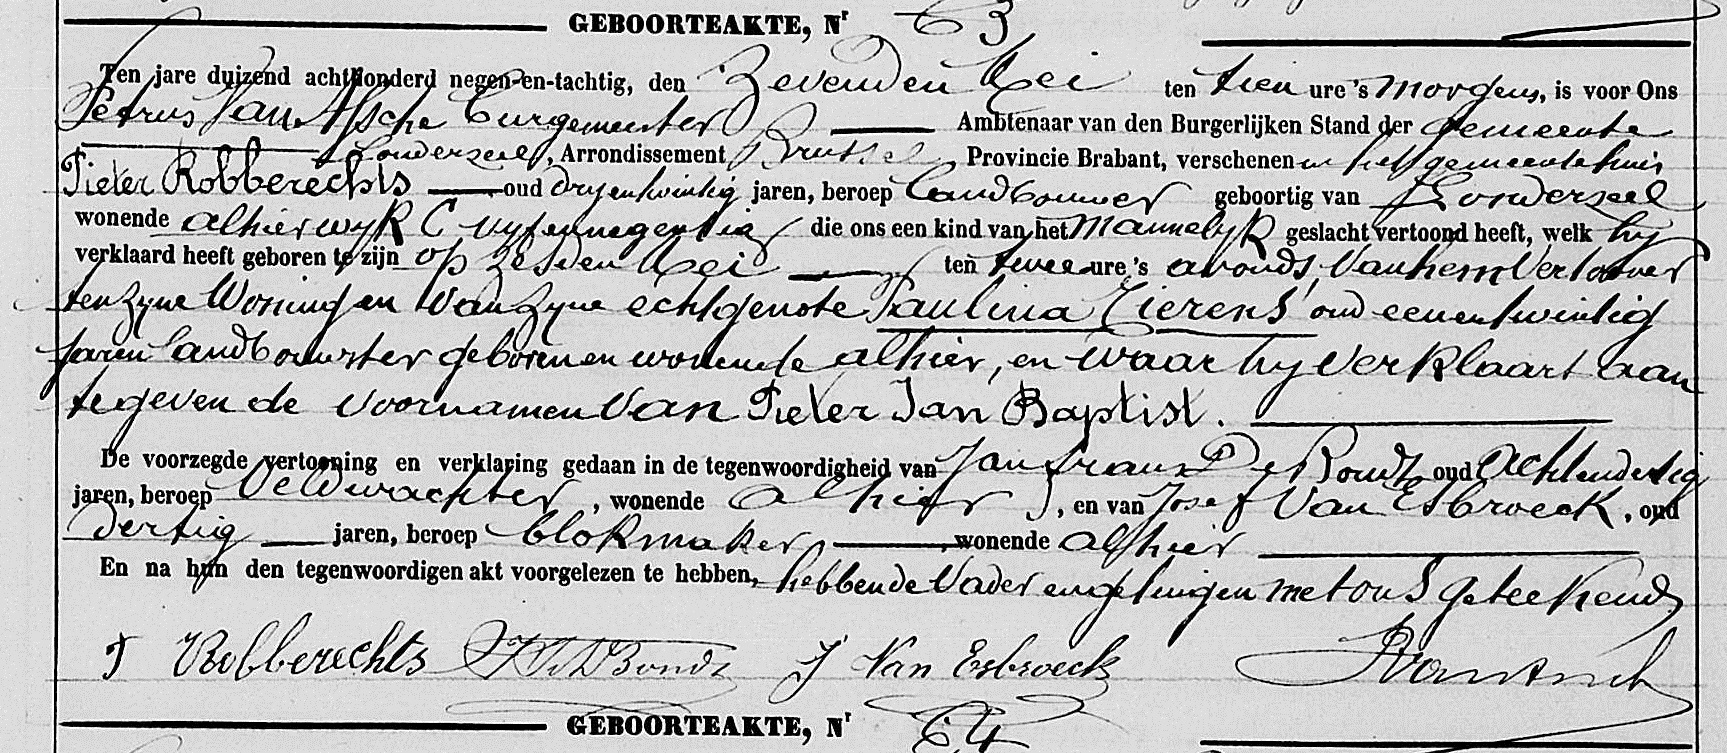 GEBOORTEAKTE, Nr 63
Ten jare duizend achthonderd negen-en-tachtig, den Zevenden Mei ten tien ure 's morgens, is voor Ons
Petrus Van Assche Burgemeester Ambtenaar van den Burgerlijken Stand der gemeente
Londerzeel, Arrondissement Brussel Provincie Brabant, verschenen in het gemeentehuis
Pieter Robberechts oud dryentwintig jaren, beroep landbouwer geboortig van Londerzeel
wonende alhier wyk C vyfennegentig die ons een kind van het mannelyk geslacht vertoond heeft, welk hy
verklaard heeft geboren te zijn op zesden Mei ten twee ure 's avonds, van hem Vertooner
ten zyne Woning en van zyne echtgenote Paulina Tierens oud eenentwintig
jaren landbouwster geboren en wonende alhier, en waar hy verklaart aan
tegeven de voornamen van Pieter Jan Baptist.
De voorzegde vertooning en verklaring gedaan in de tegenwoordigheid van Jan Frans De Bondt oud achtendertig
jaren, beroep Veldwachter, wonende alhier, en van Josef Van Esbroeck, oud
dertig jaren, beroep blokmaker, wonende alhier
En na hun den tegenwoordigen akt voorgelezen te hebben, hebben de Vader en getuigen met ons geteekend
P Robberechts De Bondt J Van Esbroeck P Van Assche
GEBOORTEAKTE, Nr 64